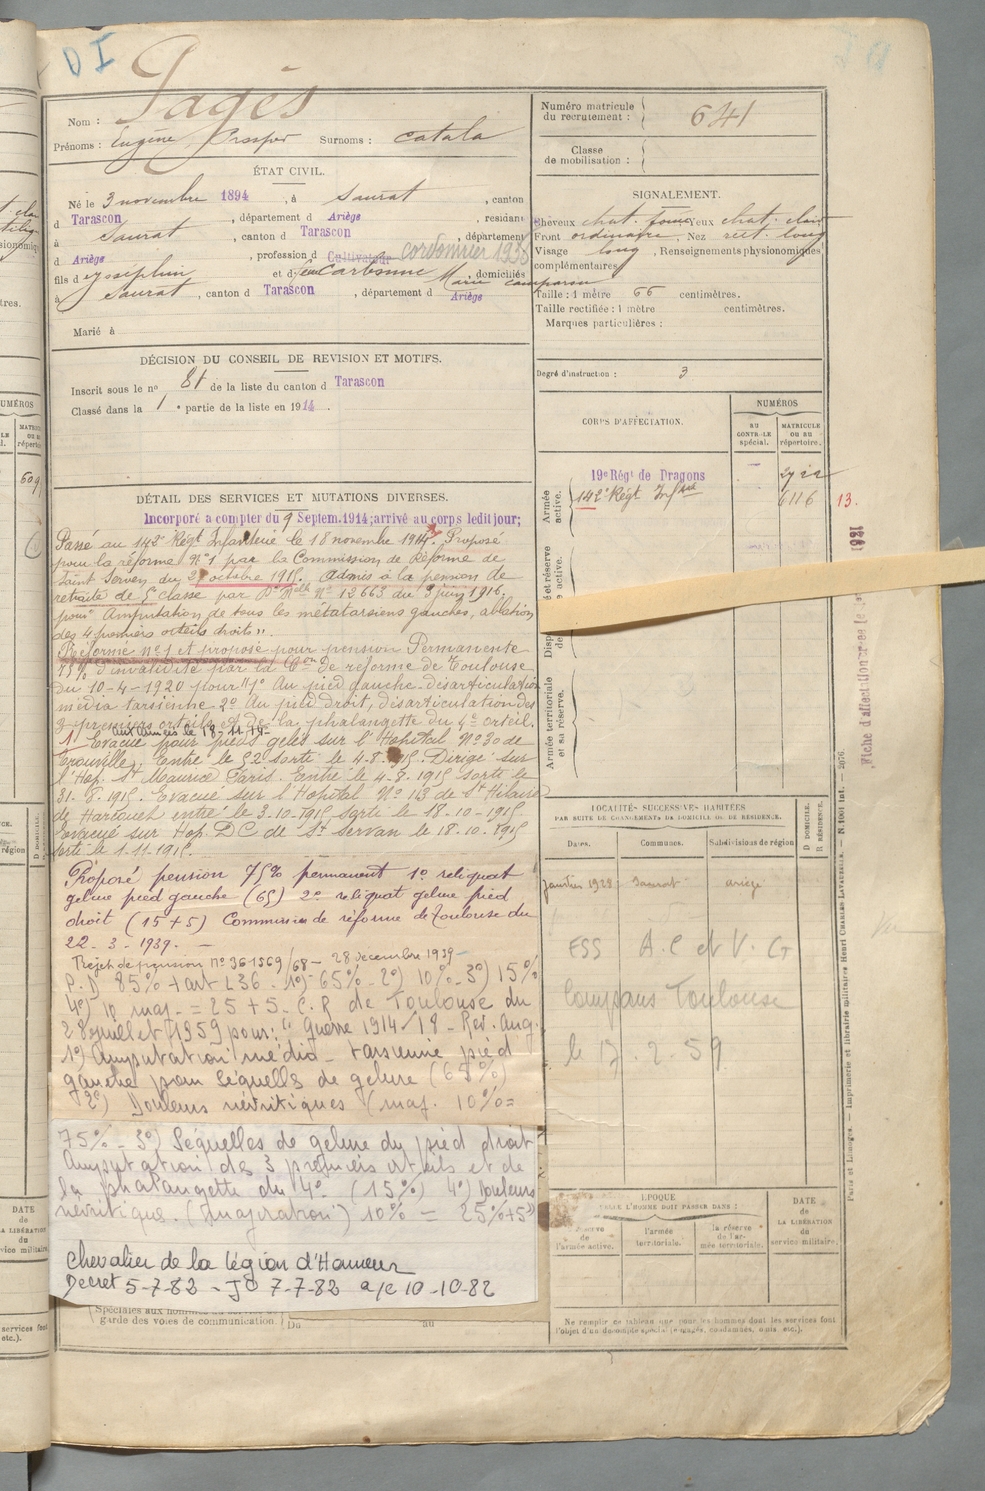 DI
Nom : Pagès
Prénoms : Eugène Prosper Surnoms : Catala
ÉTAT CIVIL.
Né le 3 novembre 1894, à Saurat, canton
d Tarascon, département d Ariège, résidant
à Saurat, canton d Tarascon, département
d Ariège, profession d Cultivateur cordonnier 1936
fils d et d feu Carbonne Marie, domiciliés
à Saurat, canton d Tarascon, département d Ariège
Marié à
DÉCISION DU CONSEIL DE REVISION ET MOTIFS.
Inscrit sous le nº 81 de la liste du canton d Tarascon
Classé dans la 1e partie de la liste en 1914.
DÉTAIL DES SERVICES ET MUTATIONS DIVERSES.
Incorporé à compter du 9 Septem. 1914; arrivé au corps ledit jour;
Passé au 142e Régt Infanterie le 18 novembre 1914. Proposé
pour la réforme Nº 1 par la Commission de Réforme de
Saint Servan du octobre 1915. Admis à la pension de
retraite de 5e classe par Nº 12663 du 3 juin 1916,
pour "Amputation de tous les métatarsiens gauches, ablation
des 4 premiers orteils droits".
Réformé nº 1 et proposé pour pension Permanente
75% d'invalidité par la Con de réforme de Toulouse
du 10-4-1920 pour "1º Au pied gauche désarticulation
média tarsienne 2º Au pied droit, désarticulation des
3 premiers orteils et de la phalangette du 4e orteil.
aux armées le 18-11-14
1/ Evacué pour pieds gelés sur l'Hopital Nº 30 de
Trouville. Entré le sorti le 4-8-1915. Dirigé sur
l'Hop. St Maurice Paris. Entré le 4-8-1915 sorti le
31-8-1915. Evacué sur l'Hopital Nº 113 de St Hilaire
de Harcouet entré le 3-10-1915 sorti le 18-10-1915
Evacué sur Hop. D.C de St Servan le 18.10.1915
sorti le 1.11.1915.
Proposé pension 75% permanent 1º reliquat
gelure pied gauche (65) 2º reliquat gelure pied
droit (15+5) Commission de réforme de Toulouse du
22-3-1939.-
Projet de pension nº 361569/68 - 28 décembre 1939-
P.D 85% + art L36. 1º) 65% - 2º) 10% - 3º) 15%
4º) 10 maj. = 25+5. C.R de Toulouse du
28 juillet 1959 pour: "Guerre 1914/18 - Rev. Aug.
1º) Amputation médio-tarsienne pied
gauche pour séquelles de gelure (65%)
2º) Douleurs névritiques (maj. 10% =
75% - 3º) Séquelles de gelure du pied droit
Amputation des 3 premiers orteils et de
la phalangette du 4e (15%) 4º) Douleurs
névritique. (Majoration) 10% = 25% + 5")
Chevalier de la Légion d'Honneur
Decret 5-7-82 - JO 7-7-82 a/c 10-10-82
(Spéciales aux hommes du service de
garde des voies de communication.) Du au
Numéro matricule du recrutement : 641
Classe de mobilisation :
SIGNALEMENT.
Cheveux chat. foncé Yeux chat. clair
Front ordinaire, Nez rect. long
Visage long, Renseignements physionomiques
complémentaires
Taille : 1 mètre 66 centimètres.
Taille rectifiée : 1 mètre centimètres.
Marques particulières :
Degré d'instruction : 3
CORPS D'AFFECTATION.
NUMÉROS
AU CONTRÔLE SPÉCIAL.
MATRICULE OU AU RÉPERTOIRE.
Armée active.
19e Régt de Dragons
142e Régt Inftie 6116 13.
Armée territoriale et sa réserve.
LOCALITÉS SUCCESSIVES HABITÉES
PAR SUITE DE CHANGEMENTS DE DOMICILE OU DE RÉSIDENCE.
Dates. Communes. Subdivisions de région
D DOMICILE. R RÉSIDENCE.
Janvier 1928 Saurat Ariège
ESS A.C et V. G
Compans Toulouse
le 17.2.59
ÉPOQUE
À LAQUELLE L'HOMME DOIT PASSER DANS :
la réserve de l'armée active.
l'armée territoriale.
la réserve de l'armée territoriale.
DATE de LA LIBÉRATION du service militaire.
Ne remplir ce tableau que pour les hommes dont les services font
l'objet d'un décompte spécial (engagés, condamnés, omis etc.).
Paris et Limoges. — Imprimerie et librairie militaires Henri CHARLES-LAVAUZELLE.